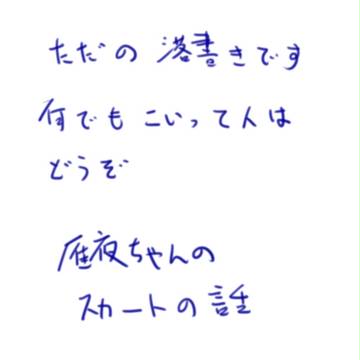 ただの 落書きです
何でも こいって人は
どうぞ
雁夜ちゃんの
スカートの話